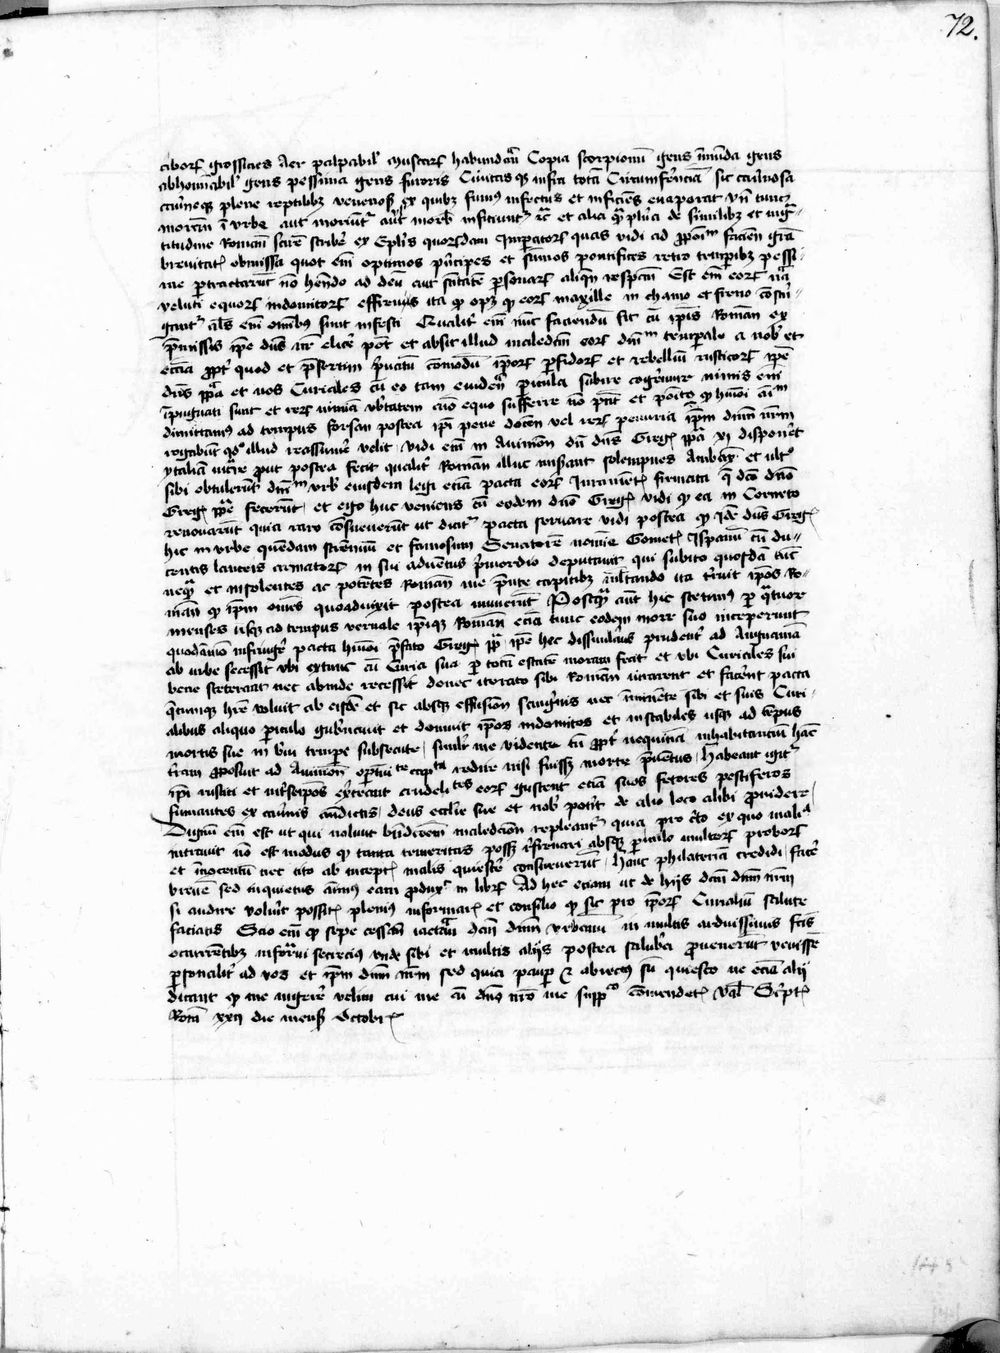 72.
ciborum grossities Aer palpabilis muscarum habundancia Copia scorpionum gens inmunda gens
abhominabilis gens pessima gens furoris Civitas infra totam Circumferenciam sic cavernosa
plene reptilibus venenosis ex quibus fumus infectus et inficiens evaporat
in urbe aut moriuntur aut morbis inficiuntur etc et alia plura de similibus et
titudine Romanorum scribere ex Epistolis quorundam Imperatorum quas vidi ad
brevitatis obmissa quot enim optimos principes et summos pontifices retro temporibus pessi-
me pertractarunt non habendo ad deum aut sanctitatem personarum aliquem respectum Est enim eorum natura
veluti equorum indomitorum effrenus ita quod oportet quod eorum maxille in chamo et freno constrin-
gantur alias enim omnibus sunt infesti Qualiter enim nunc faciendum sit cum ipsis Romanis ex
premissis ipse dominus elicere potest et absit illud maledictum eorum dominium temporale a nobis et
ecclesia propter quod et presertim privatum comodum ipsorum perfidorum et rebellium rusticorum ipse
dominus papa et nos Curiales cum eo tam evidentia pericula subire cogeremur nimis enim
inpugnati sunt et rerum nimiam ubertatem equo sufferre non possunt et
dimittamus ad tempus forsan postea ipsi pene docente vel rerum penuria ipsum dominum nostrum
rogabunt quod illud reassumere velit vidi enim in Avinione dum dominus Gregorius papa xi disponeret
ytaliam intrare prout postea fecit qualiter Romani illuc miserant solempnes Ambaxiatores et ultro
sibi obtulerunt dominium urbis eiusdem legi etiam pacta eorum Iuramentis firmata que dicto domino
Gregorio pape fecerunt et ego huc veniens cum eodem domino Gregorio vidi quod ea in Corneto
renovarunt quia raro consueverunt ut dicitur pacta servare vidi postea quod Idem dominus Gregorius
hic in urbe quendam strennuum et famosum Senatorem nomine Gometium Ispanum cum du-
centis lanceis armatorum in sui adventus primordio deputavit qui subito quosdam tunc
nequam et insolentes ac potentes Romanos capitibus ita terruit ipsos Ro-
manos quod ipsum omnes quoadvixit postea timuerunt Postquam autem hic stetimus per quatuor
menses usque ad tempus vernale ipsique Romani etiam tunc eodem more suo inceperunt
quodammodo infringere pacta huiusmodi prefato Gregorio pape ipse hec dissimulans prudenter ad Anagniam
ab urbe secessit ubi extunc cum Curia sua per totam estatem moram fecit et ubi Curiales sui
bene steterant nec abinde recessit donec iterato sibi Romani iurarent et facerent pacta
quecumque habere voluit ab eisdem et sic absque effusione sanguinis nec inminente sibi et suis Curi-
alibus aliquo periculo gubernavit et domuit ipsos indomitos et instabiles usque ad tempus
mortis sue in brevi tempore subsecute similiter me vidente cum propter nequitiam inhabitancium hanc
terram proposuit ad Avinionem oportunitate capta redire nisi fuisset morte preventus habeant igitur
ipsi rustici et exerceant crudelitates eorum gustent etiam suos fetores pestiferos
fumantes ex cavernis antedictis deus ecclesie sue et nobis poterit de alio loco alibi providere
Dignum enim est ut qui nolunt benedictionem maledictione repleantur quia pro certo ex quo mala
intravit non est modus quod tanta temeritas possit refrenari absque periculo multorum proborum
et innocentum nec cito ab inceptis malis quiescere consueverunt hanc philateriam credidi facere
brevem sed inquietus animus eam produxit in librum Ad hec etiam ut de hiis dictum dominum nostrum
si audire voluerit possitis plenius informare et consilio quod sit pro ipsorum Curialium salute
faciatis Scio enim quod sepe dictum dominum Urbanum in multis arduissimis factis
occurrentibus informavi secrecius unde sibi et multis aliis postea salubria provenerunt venissem
personaliter ad vos et ipsum dominum nostrum sed quia pauper et abiectus sum quiesco ne etiam alii
dicant quod me ingerere velim cui me cum domino nostro me supplico commendetis Valete Scriptum
Rome xxij die mensis Octobris